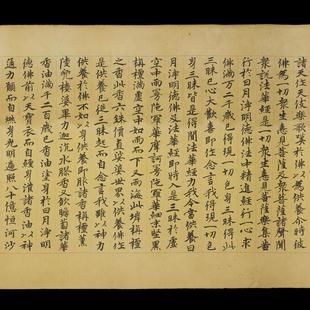 諸天作天伎樂歌歎於佛以為供養尒時彼
佛為一切衆生憙見菩薩及衆菩薩諸聲聞
衆說法華經是一切衆生憙見菩薩樂習苦
行於日月淨明德佛法中精進經行一心求
佛滿万二千歲已得現一切色身三昧得此
三昧已心大歡喜即作念言我得現一切色
身三昧皆是得聞法華經力我今當供養日
月淨明德佛及法華經即時入是三昧於虛
空中雨曼陀羅華摩訶曼陀羅華細末堅黑
栴檀滿虛空中如雲而下又雨海此岸栴檀
之香此香六銖價直娑婆世界以供養佛作
是供養已從三昧起而自念言我雖以神力
供養於佛不如以身供養即服諸香栴檀薰
陸兜樓婆畢力迦沉水膠香又飲瞻蔔諸華
香油滿千二百歲已香油塗身於日月淨明
德佛前以天寶衣而自纏身灌諸香油以神
通力願而自燃身光明遍照八十億恒河沙